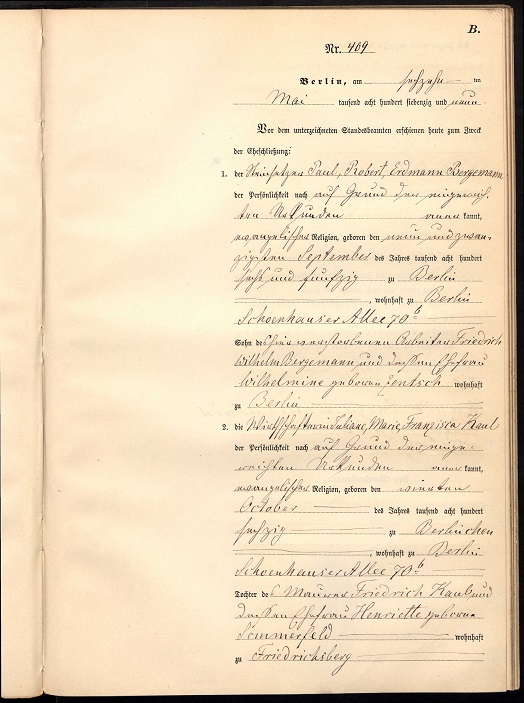 B.
Nr. 409
Berlin, am sechzehn ten
Mai tausend acht hundert siebenzig und neun.
Vor dem unterzeichneten Standesbeamten erschienen heute zum Zweck
der Eheschließung:
1. der Steinsetzer Paul, Robert, Erdmann Bergemann
der Persönlichkeit nach auf Grund der eingereich,
ten Urkunden anerkannt,
evangelischer Religion, geboren den neun und zwan,
zigsten September des Jahres tausend acht hundert
sechs und funfzig zu Berlin
, wohnhaft zu Berlin
Schoenhauser Allee 70b
Sohn des hier verstorbenen Arbeiter Friedrich
Wilhelm Bergemann und dessen Ehefrau
Wilhelmine geboren Jentsch wohnhaft
zu Berlin
2. die Wirthschafterin Juliane, Marie, Franziska Kaul
der Persönlichkeit nach auf Grund der einge,
reichten Urkunden anerkannt,
evangelischer Religion, geboren den vierten
October des Jahres tausend acht hundert
sechzig zu Berlinchen
, wohnhaft zu Berlin
Schoenhauser Allee 70b
Tochter des Maurer Friedrich Kaul und
dessen Ehefrau Henriette geboren
Sommerfeld wohnhaft
zu Friedrichsberg